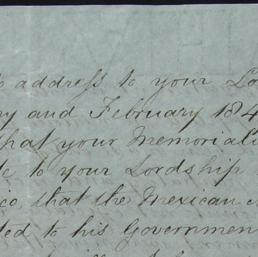 address to your Lo
ry and February 184
that your Memoriali
te to your Lordship
ico that the Mexican
ted to his Governmen